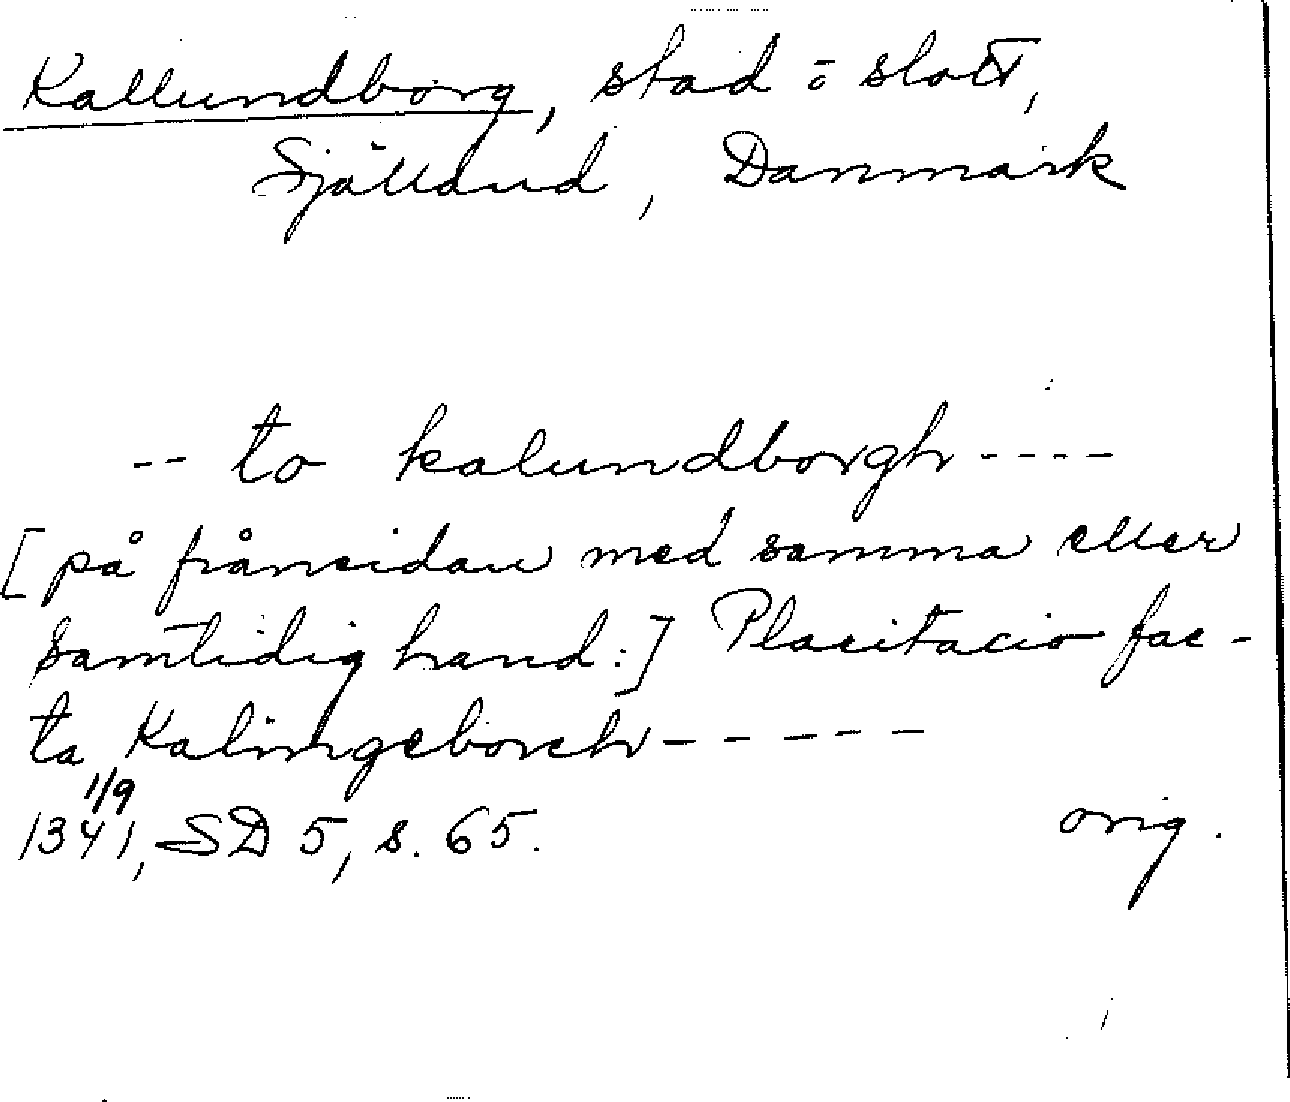 Kallundborg, stad o slott,
Själland, Danmark
-- to kalundborgh ----
[på frånsidan med samma eller
samtidig hand:] Placitacio fac-
ta Kalingeborch -----
1/9
1341, SD 5, s. 65. orig.